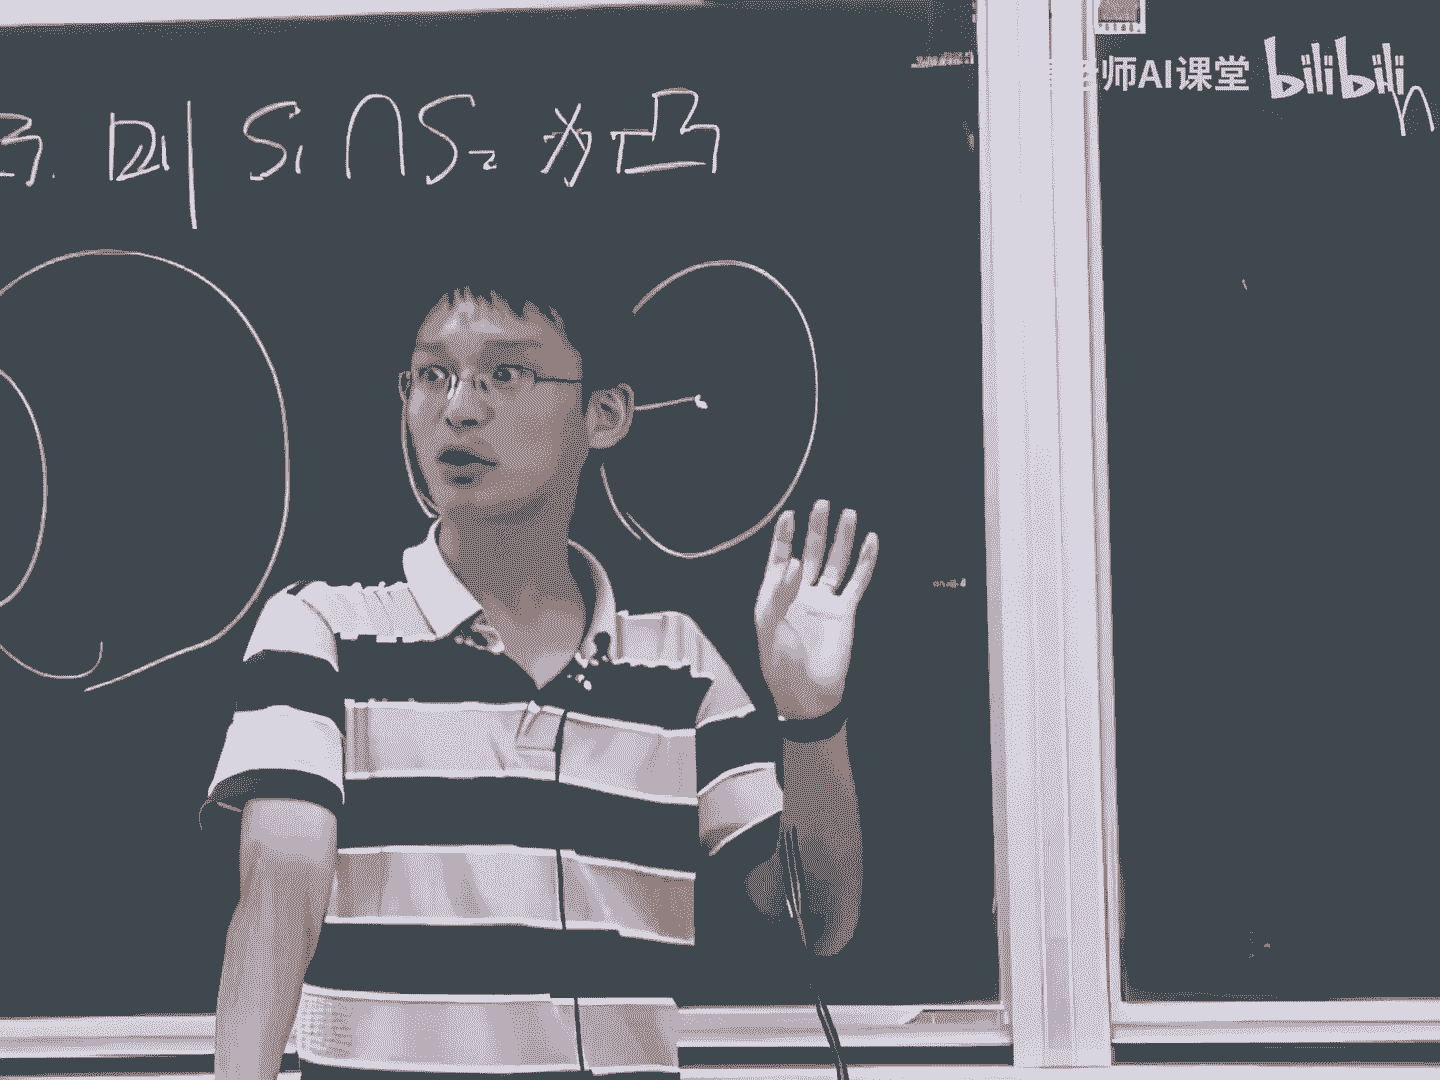 师AI课堂 bilibili
凸. 则 S₁ ∩ S₂ 为凸
n